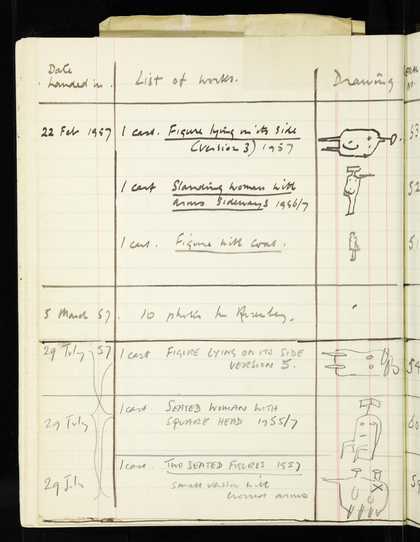 Date
handed in.
List of works.
Drawing
22 Feb 1957
1 cast. Figure lying on its side
(version 3) 1957
53
1 cast Standing Woman with
arms sideways 1956/7
52
1 cast. Figure with Coat.
51
5 March 57.
10 photos
29 July 57
1 cast FIGURE LYING ON ITS SIDE
VERSION 5.
29 July
1 cast SEATED WOMAN WITH
SQUARE HEAD 1955/7
60
29 July
1 cast. TWO SEATED FIGURES 1957
small version with
crossed arms